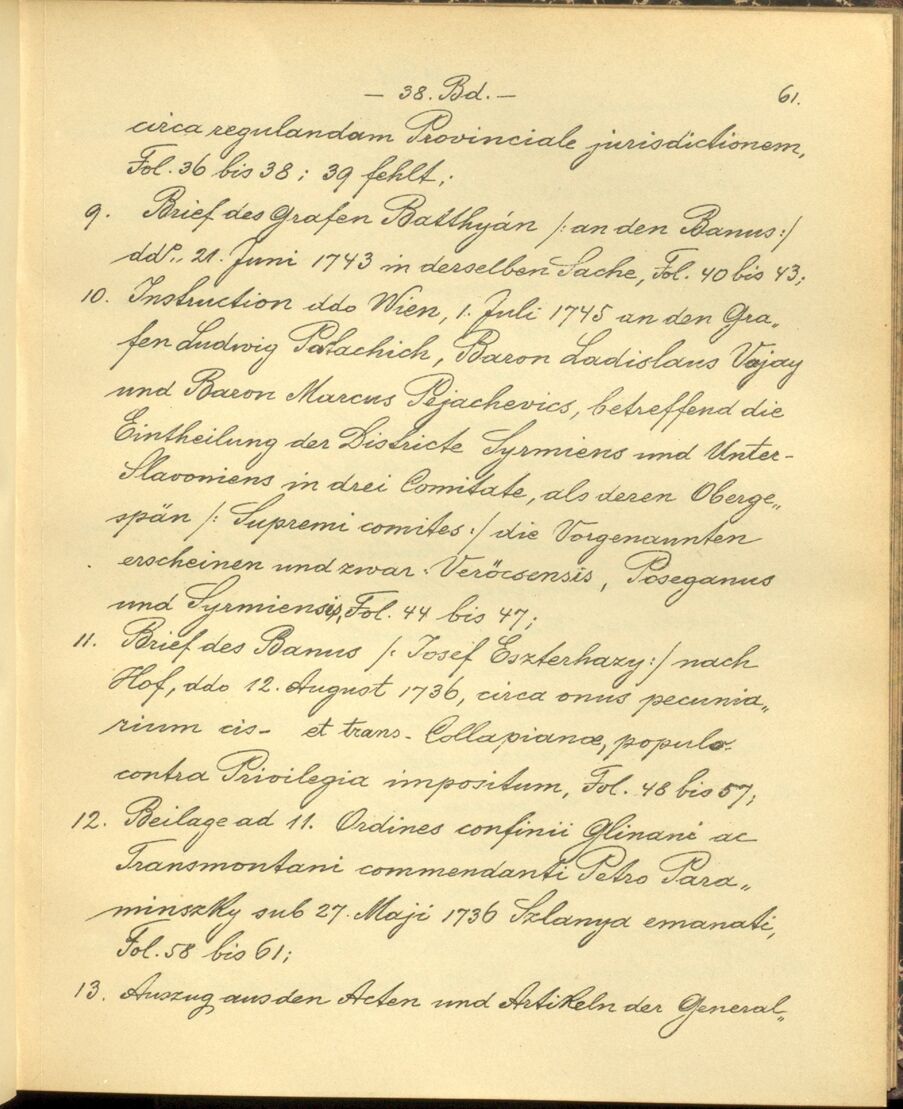 — 38. Bd. — 61.
circa regulandam Provinciale jurisdictionem,
Fol. 36 bis 38; 39 fehlt;
9. Brief des Grafen Batthyán /: an den Banus :/
ddo. 21. Juni 1743 in derselben Sache, Fol. 40 bis 43;
10. Instruction ddo Wien, 1. Juli 1745 an den Gra„
fen Ludwig Patachich, Baron Ladislaus Vajay
und Baron Marcus Pejachevics, betreffend die
Eintheilung der Districte Syrmiens und Unter-
Slavoniens in drei Comitate, als deren Oberge„
spän /: Supremi comites :/ die Vorgenannten
erscheinen und zwar: Veröcsensis, Poseganus
und Syrmiensis, Fol. 44 bis 47;
11. Brief des Banus /: Josef Eszterhazy :/ nach
Hof, ddo 12. August 1736, circa onus pecunia„
rium cis- et trans- Collapianæ, populo
contra Privilegia impositum, Fol. 48 bis 57;
12. Beilage ad 11. Ordines confinii Glinani ac
Transmontani commendanti Petro Para„
minszky sub 27. Maji 1736 Szlanya emanati,
Fol. 58 bis 61;
13. Auszug aus den Acten und Artikeln der General„